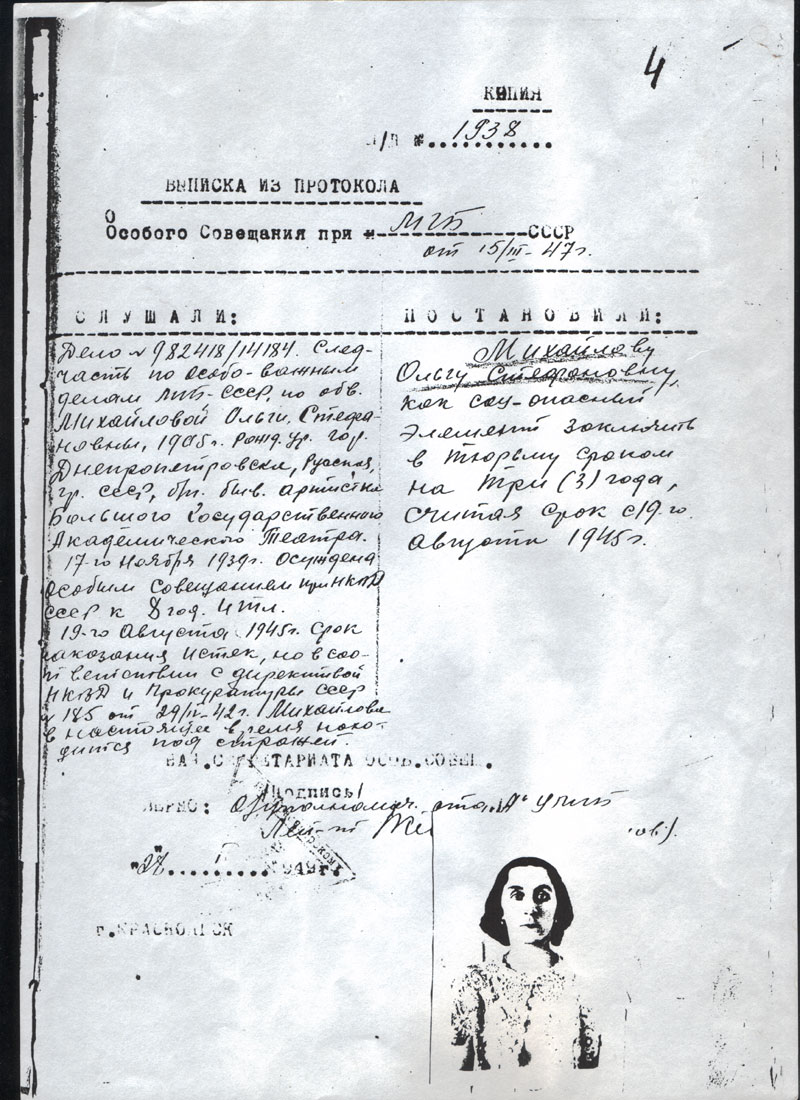 4
КОПИЯ
п/п № 1938
ВЫПИСКА ИЗ ПРОТОКОЛА
О
Особого Совещания при МГБ СССР
от 15/III-47г.
СЛУШАЛИ:
Дело № 982418/14184. След-
часть по особо-важным
делам МГБ-СССР, по обв.
Михайловой Ольги, Стефа-
новны, 1905г. рожд. ур. гор.
Днепропетровска, Русская,
гр. СССР, б/п. быв. артистка
Большого Государственного
Академического Театра.
17-го Ноября 1939г. осуждена
Особым Совещанием при НКВД
СССР к 8 год. ИТЛ.
19-го Августа 1945г. срок
наказания истек, но в соо-
тветствии с директивой
НКВД и Прокуратуры СССР
№ 185 от 29/IV-42г. Михайлова
в настоящее время нахо-
дится под стражей.
ПОСТАНОВИЛИ:
Михайлову
Ольгу Стефановну,
как соц-опасный
элемент заключить
в тюрьму сроком
на три (3) года,
считая срок с 19-го
августа 1945г.
НАЧ. СЕКРЕТАРИАТА ОСОБ. СОВЕЩ.
/подпись/
ВЕРНО: отд. "А"
Лей-т
ов/.
949г.
г. КРАСНОЯРСК